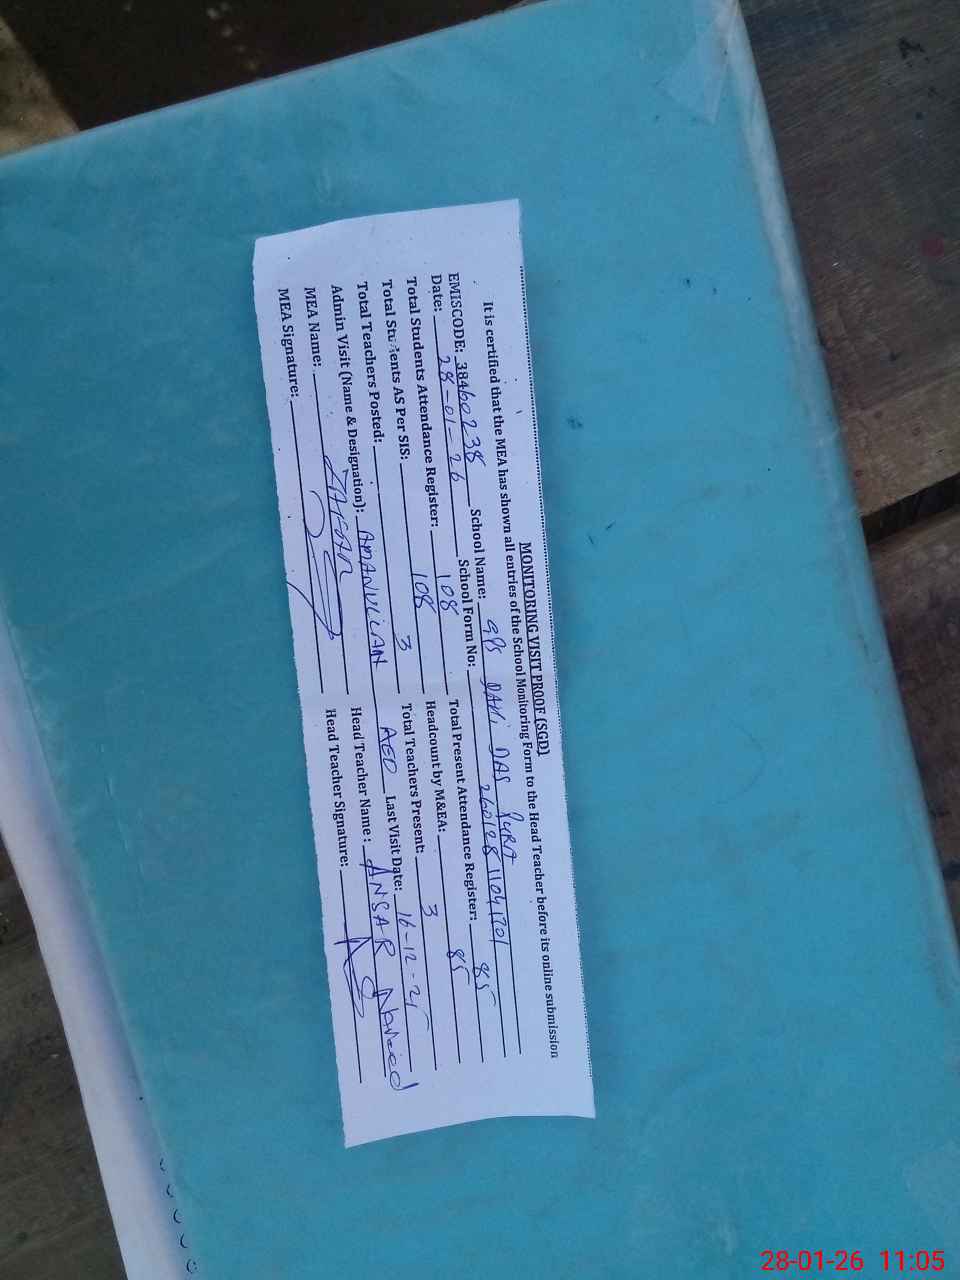 MONITORING VISIT PROOF (SGD)
It is certified that the MEA has shown all entries of the School Monitoring Form to the Head Teacher before its online submission
EMISCODE: 38460238 School Name: GPS DAVi DAS PURA
Date: 28-01-26 School Form No: 26012811041701
Total Students Attendance Register: 108 Total Present Attendance Register: 85
Total Students AS Per SIS: 108 Headcount by M&EA: 85
Total Teachers Posted: 3 Total Teachers Present: 3
Admin Visit (Name & Designation): AMANULLAH AEO Last Visit Date: 16-12-25
MEA Name: ZAFAR Head Teacher Name: ANSAR Naveed
MEA Signature: Head Teacher Signature:
28-01-26 11:05